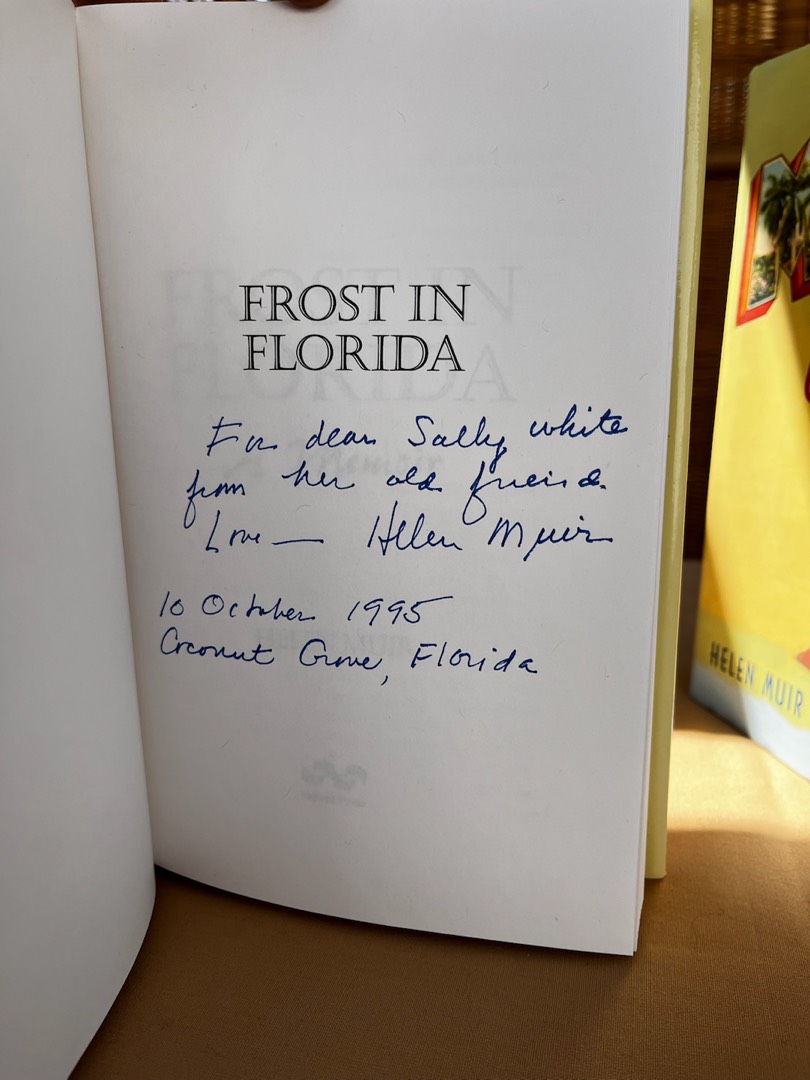 FROST IN
FLORIDA
For dear Sally White
from her old friend.
Love — Helen Muir
10 October 1995
Coconut Grove, Florida
HELEN MUIR